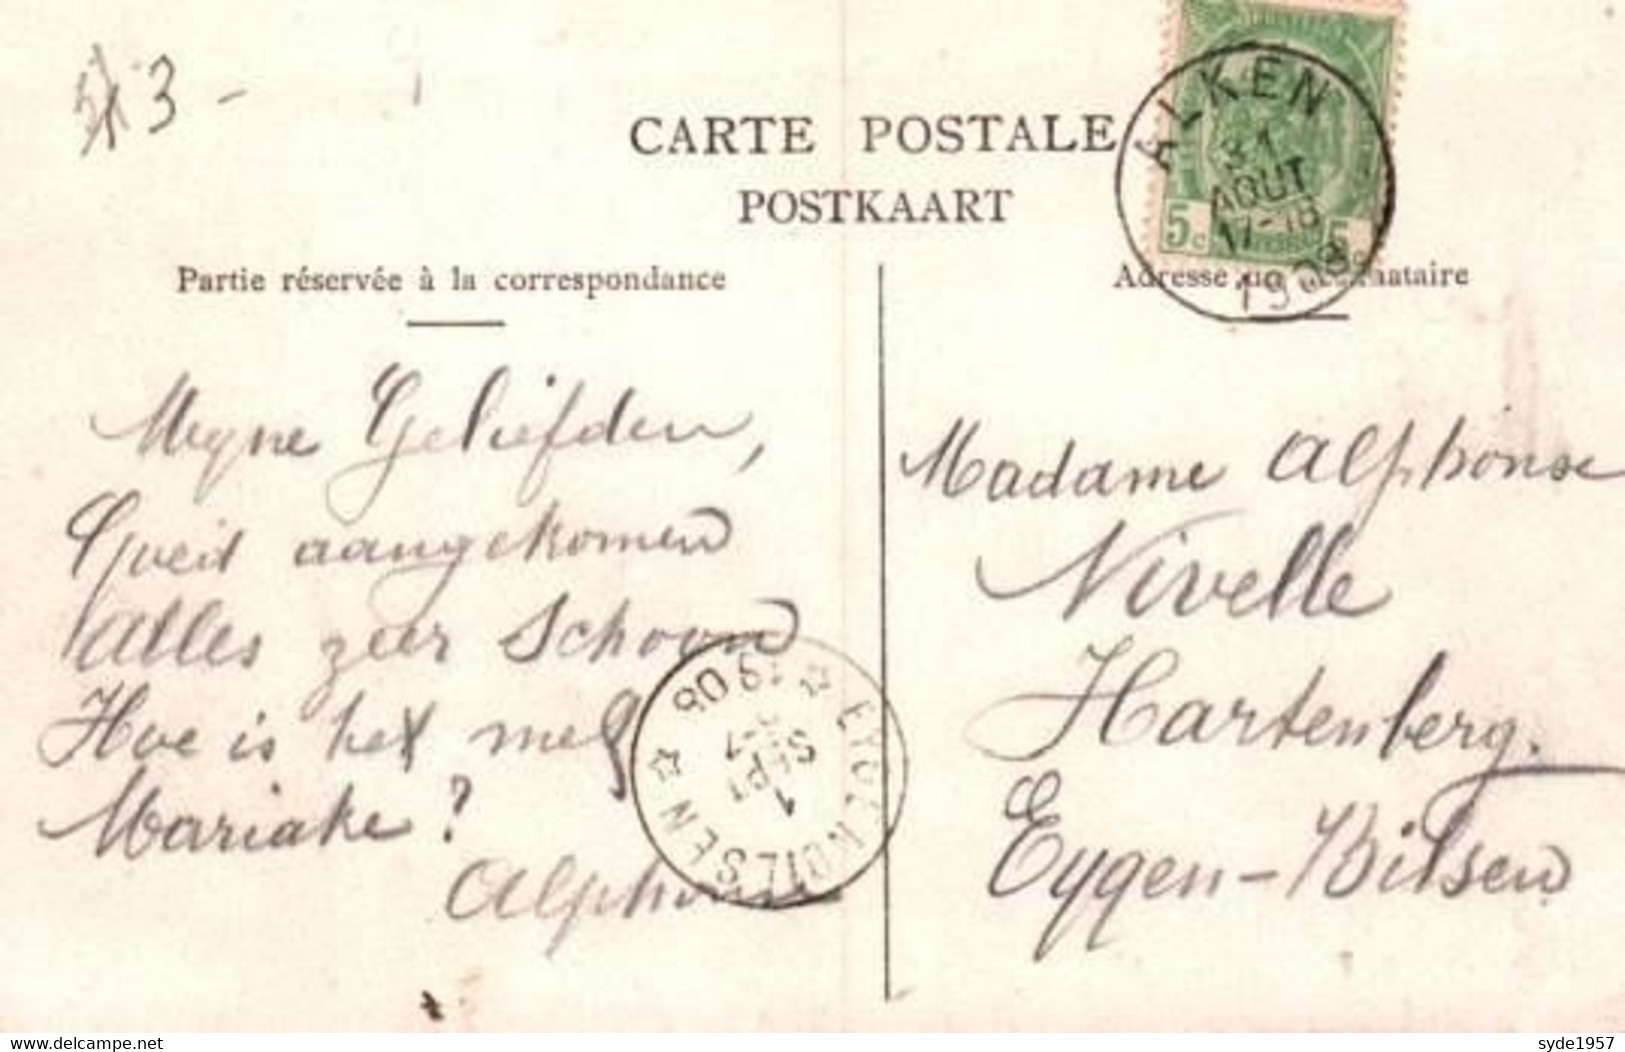 3 -
CARTE POSTALE
POSTKAART
Partie réservée à la correspondance
Adresse
ALKEN
31
AOUT
17-18
1908
5c 5
Meyne Geliefden,
Goed aangekomen
Alles zeer Schoon
Hoe is het met
Mariake?
Alphons
EYGENBILSEN
1
SEPT
1908
Madame Alphonse
Nivelle
Hartenberg.
Eygen-Bilsen
delcampe.net
syde1957